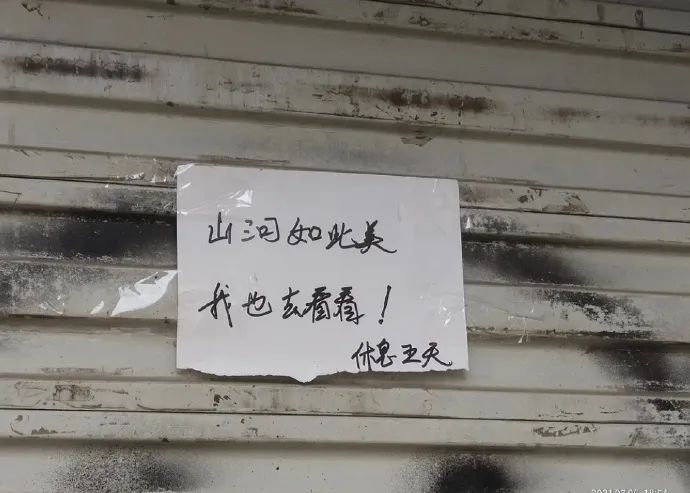 山河如此美
我也去看看！
休息五天